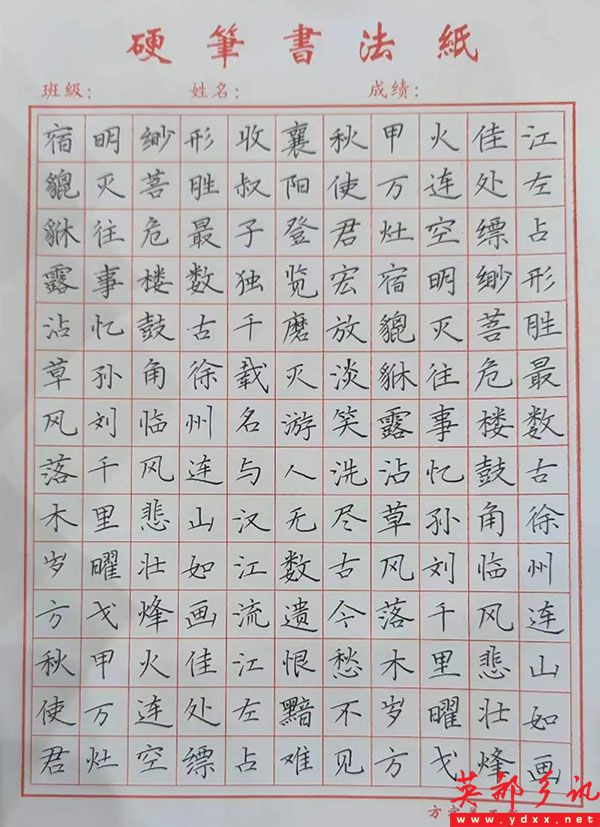 硬筆書法紙
班級： 姓名： 成绩：
江左占形胜最数古徐州连山如画
佳处缥缈菩危楼鼓角临风悲壮烽
火连空明灭往事忆孙刘千里曜戈
甲万灶宿貔貅露沾草风落木岁方
秋使君宏放淡笑洗尽古今愁不见
襄阳登览磨灭游人无数遗恨黯难
收叔子独千载名与汉江流江左占
形胜最数古徐州连山如画佳处缥
缈菩危楼鼓角临风悲壮烽火连空
明灭往事忆孙刘千里曜戈甲万灶
宿貔貅露沾草风落木岁方秋使君
英都乡讯
www.ydxx.net